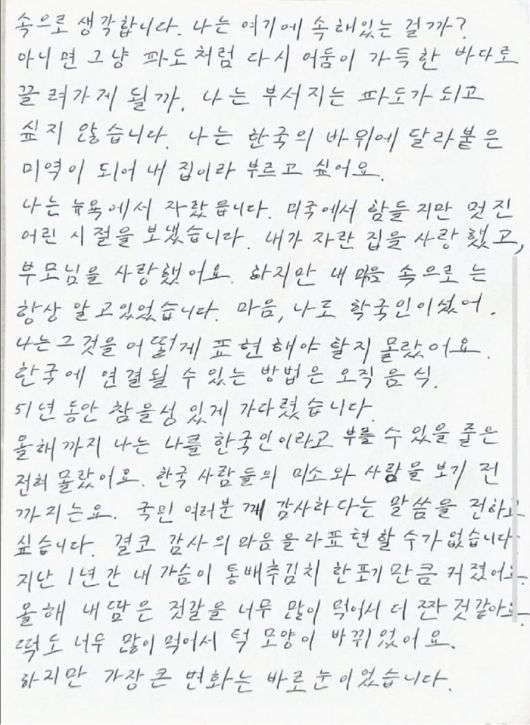 속으로 생각합니다. 나는 여기에 속해있는 걸까?
아니면 그냥 파도처럼 다시 어둠이 가득한 바다로
끌려가게 될까. 나는 부서지는 파도가 되고
싶지 않습니다. 나는 한국의 바위에 달라붙은
미역이 되어 내 집이라 부르고 싶어요.
나는 뉴욕에서 자랐습니다. 미국에서 함들지만 멋진
어린 시절을 보냈습니다. 내가 자란 집을 사랑했고,
부모님을 사랑했어요. 하지만 내 마음 속으로는
항상 알고있었습니다. 마음, 나로 학국인이셨어.
나는 그것을 어떻게 표현해야 할지 몰랐어요.
한국에 연결될 수 있는 방법은 오직 음식.
51년 동안 참을성 있게 가다렸습니다.
올해까지 나는 나를 한국인이라고 부를 수 있을 줄은
전혀 몰랐어요. 한국 사람들의 미소와 사람을 보기 전
까지는요. 국민 여러분께 감사하다는 말씀을 전하고
싶습니다. 결코 감사의 마음을 라표현할 수가 없습니다
지난 1년간 내 가슴이 통배추김치 한포기만큼 커졌어요.
올해 내 땀은 젓갈을 너무 많이 먹어서 더 짠 것 같아요.
떡도 너무 많이 먹어서 턱 모양이 바뀌었어요.
하지만 가장 큰 변화는 바로 눈이었습니다.